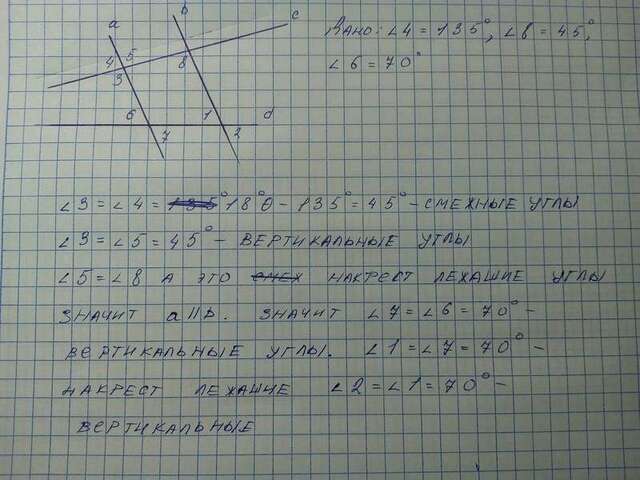 a
b
c
Дано: ∠4 = 135°, ∠8 = 45°,
4 5
3
8
∠6 = 70°
6
1
d
7
2
∠3 = ∠4 = 180° - 135° = 45° - СМЕЖНЫЕ УГЛЫ
∠3 = ∠5 = 45° - ВЕРТИКАЛЬНЫЕ УГЛЫ
∠5 = ∠8 А ЭТО СМЕЖ НАКРЕСТ ЛЕЖАЩИЕ УГЛЫ
ЗНАЧИТ a || b. ЗНАЧИТ ∠7 = ∠6 = 70° -
ВЕРТИКАЛЬНЫЕ УГЛЫ. ∠1 = ∠7 = 70° -
НАКРЕСТ ЛЕЖАЩИЕ ∠2 = ∠1 = 70° -
ВЕРТИКАЛЬНЫЕ